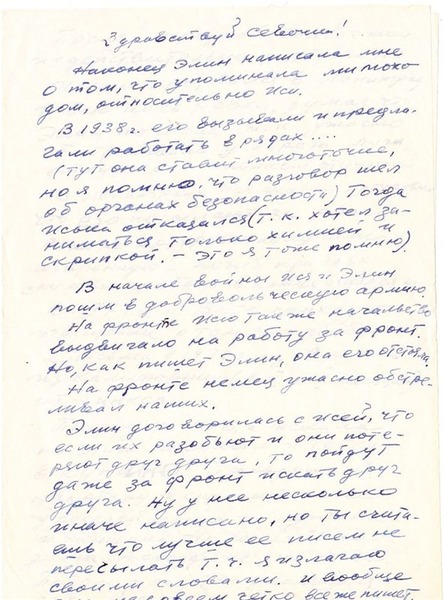 Здравствуй Севочка!
Наконец Элин написала мне
о том, что упоминала мимохо
дом, относительно Иси.
В 1938 г. его вызывали и предла-
гали работать в рядах ....
(тут она ставит многоточие,
но я помню, что разговор шел
об органах безопасности) Тогда
Иська отказался (т. к. хотел за-
ниматься только химией и
скрипкой. – Это я тоже помню).
В начале войны Ися и Элин
пошли в добровольческую армию.
На фронте Исю также начальство
выдвигало на работу за фронт
Но, как пишет Элин, она его отстояла.
На фронте немец ужасно обстре-
ливал наших.
Элин договорилась с Исей, что
если их разобьют и они поте-
ряют друг друга, то пойдут
даже за фронт искать друг
друга. Ну у нее несколько
иначе написано, но ты счита-
ешь что лучше ее писем не
пересылать т. ч. я излагаю
своими словами. и вообще
не совсем четко все же пишет.